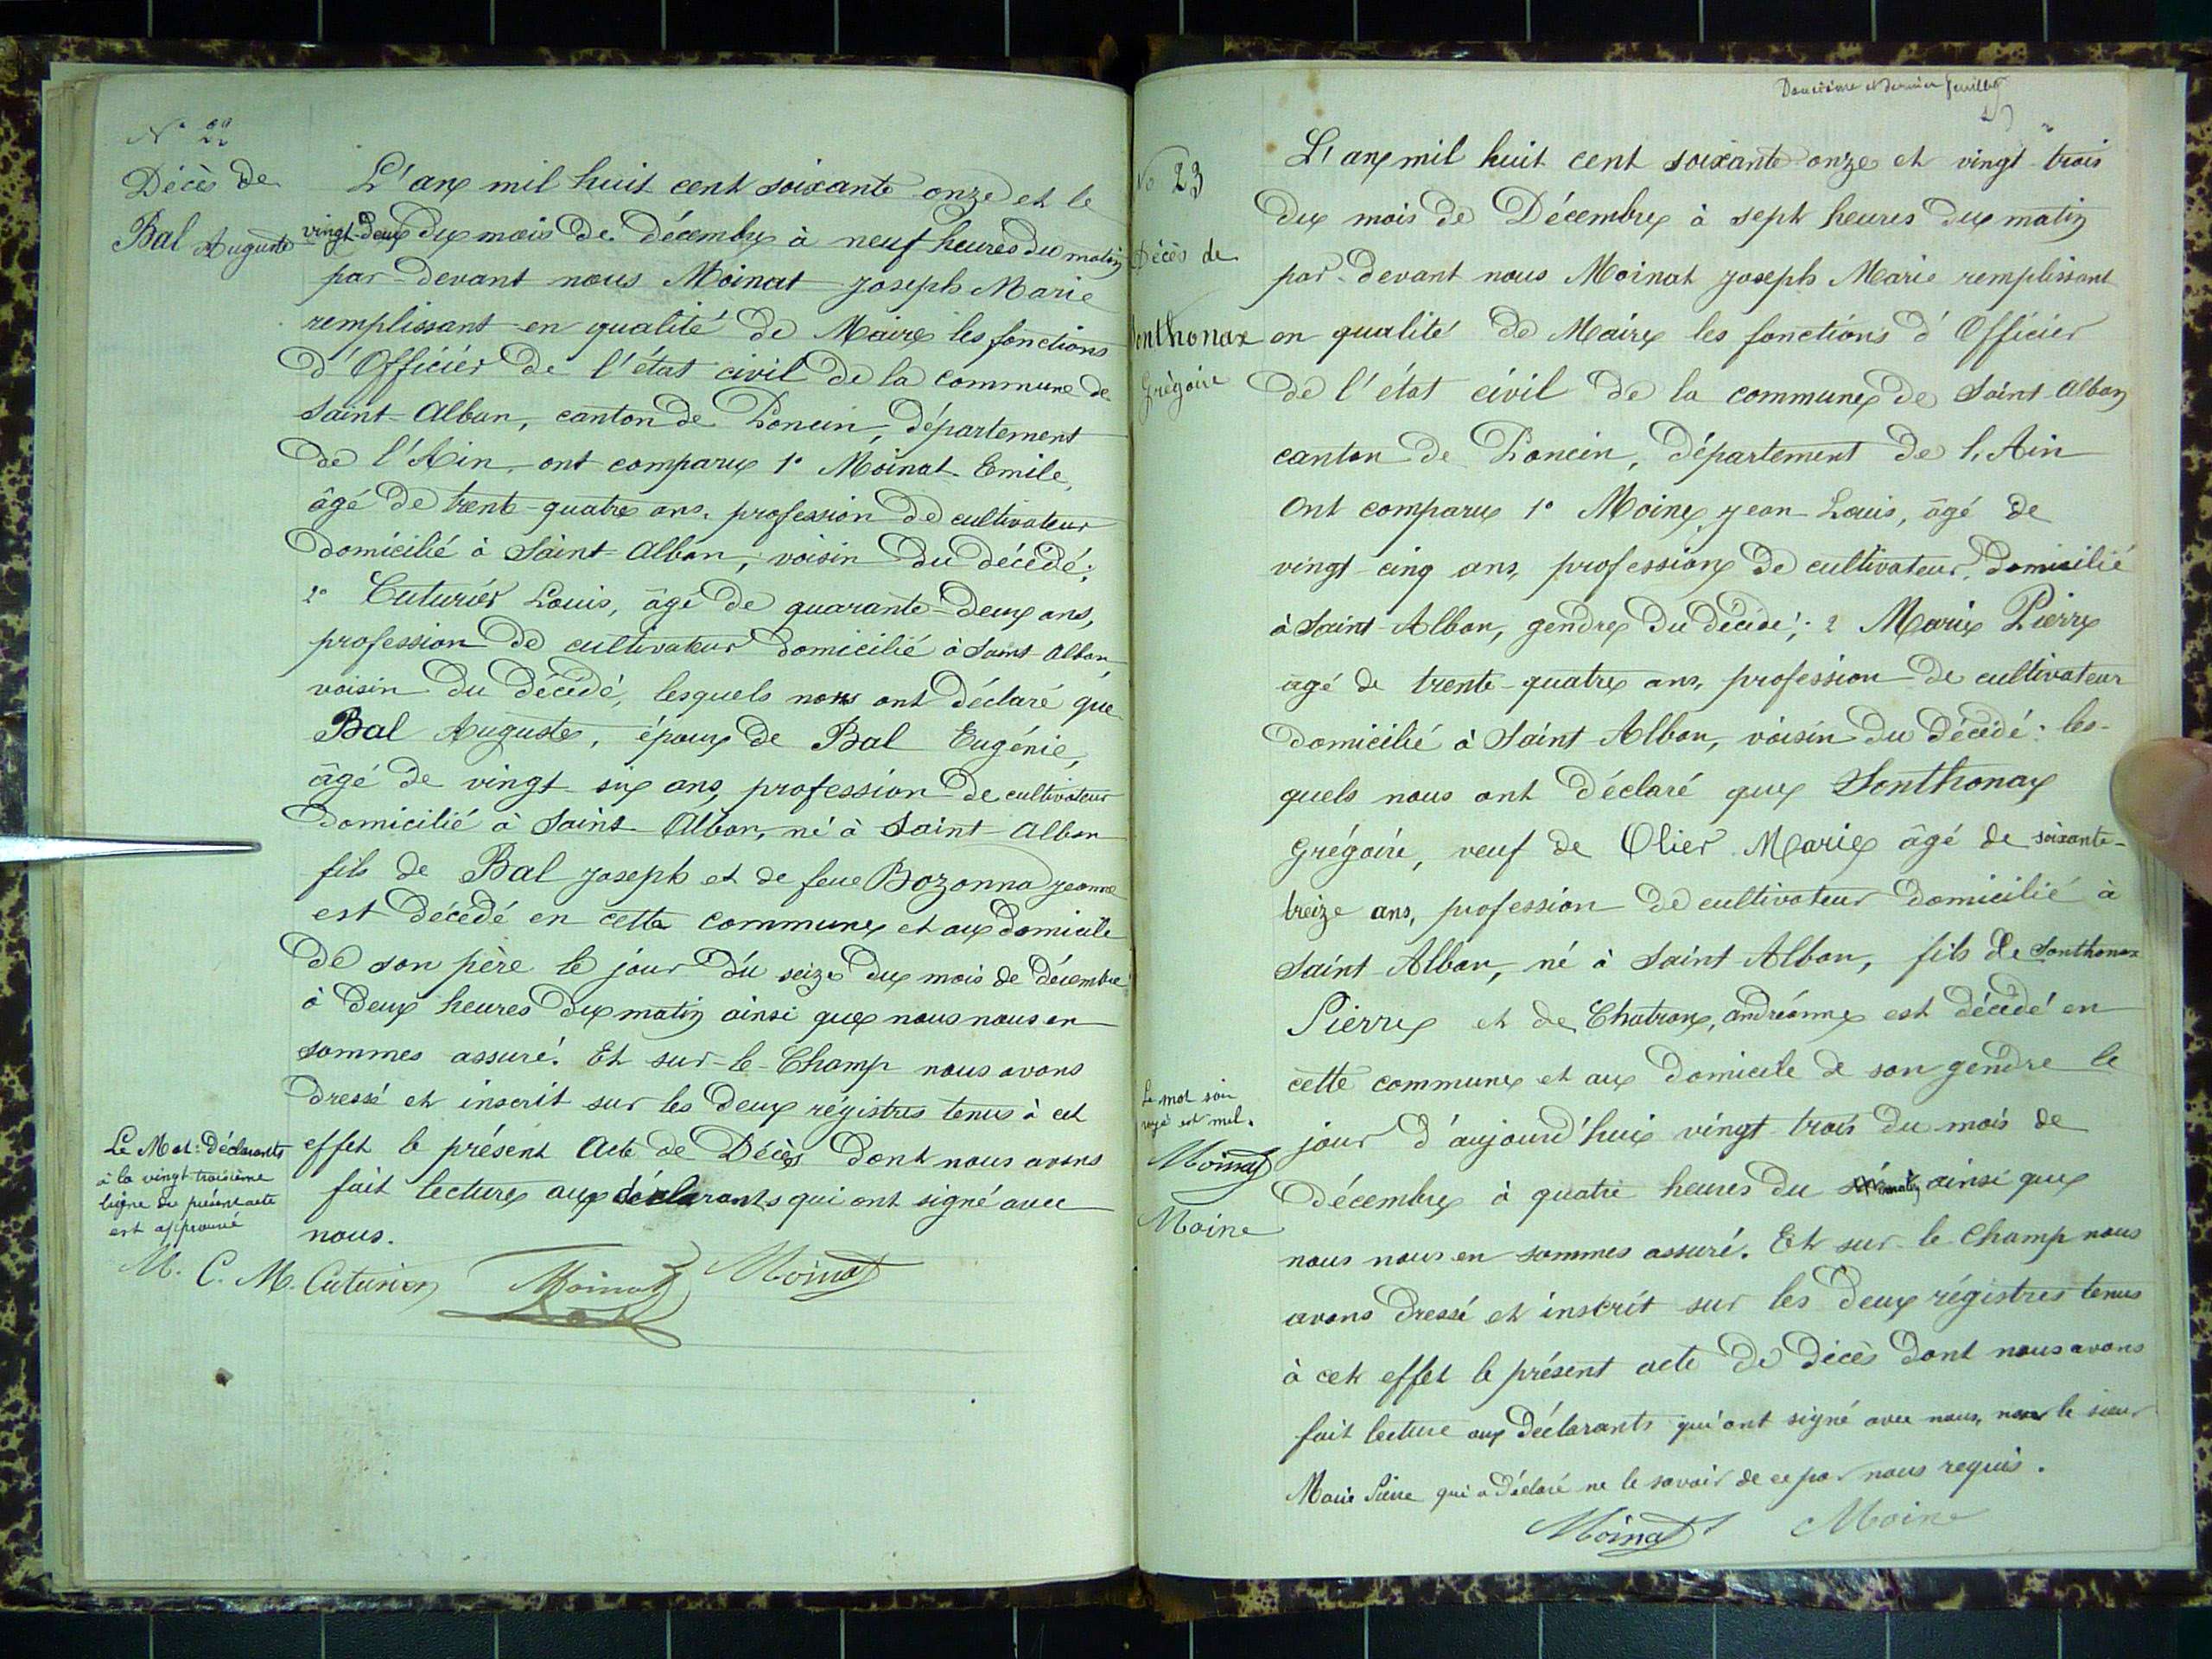 N° 22
Décès de
Bal Auguste
L'an mil huit cent soixante onze et le
vingt-deux du mois de décembre à neuf heures du matin
par-devant nous Moinat Joseph Marie
remplissant en qualité de Maire les fonctions
d'Officier de l'état civil de la commune de
Saint-Alban, canton de Poncin, département
de l'Ain, ont comparu 1° Moinat Emile,
âgé de trente-quatre ans, profession de cultivateur
domicilié à Saint-Alban, voisin du décédé;
2° Cuturier Louis, âgé de quarante-deux ans,
profession de cultivateur domicilié à Saint-Alban
voisin du décédé, lesquels nous ont déclaré que
Bal Auguste, époux de Bal Eugénie,
âgé de vingt six ans, profession de cultivateur
domicilié à Saint-Alban, né à Saint-Alban
fils de Bal Joseph et de feue Bozonna Jeanne
est décédé en cette commune et au domicile
de son père le jour du seize du mois de décembre
à deux heures du matin ainsi que nous nous en
sommes assuré. Et sur-le-Champ nous avons
dressé et inscrit sur les deux régistres tenus à cet
effet le présent Acte de Décès dont nous avons
fait lecture aux déclarants qui ont signé avec
nous.
Le Mot: Déclarants
à la vingt-troisième
ligne du présent acte
est approuvé
M. C. M. Cuturier Moinat Moinat
Douzième et dernier feuillet
N° 23
Décès de
Sonthonax
Grégoire
L'an mil huit cent soixante onze et vingt-trois
du mois de Décembre à sept heures du matin
par-devant nous Moinat Joseph Marie remplissant
en qualité de Maire les fonctions d'Officier
de l'état civil de la commune de Saint-Alban
canton de Poncin, département de l'Ain
Ont comparu 1° Moine Jean-Louis, âgé de
vingt-cinq ans, profession de cultivateur, domicilié
à Saint-Alban, gendre du décédé; 2 Marie Pierre
âgé de trente-quatre ans, profession de cultivateur
domicilié à Saint-Alban, voisin du décédé: les-
quels nous ont déclaré que Sonthonax
Grégoire, veuf de Olier Marie âgé de soixante-
treize ans, profession de cultivateur domicilié à
Saint-Alban, né à Saint-Alban, fils de Sonthonax
Pierre et de Chatron, andréanne est décédé en
cette commune et au domicile de son gendre le
jour d'aujourd'hui vingt-trois du mois de
décembre à quatre heures du matin ainsi que
nous nous en sommes assuré. Et sur-le-Champ nous
avons dressé et inscrit sur les deux régistres tenus
à cet effet le présent acte de Décès dont nous avons
fait lecture aux Déclarants qui ont signé avec nous, non le sieur
Marie Pierre qui a déclaré ne le savoir de ce par nous requis.
Le mot soir
rayé est nul.
Moinat
Moine
Moinat Moine